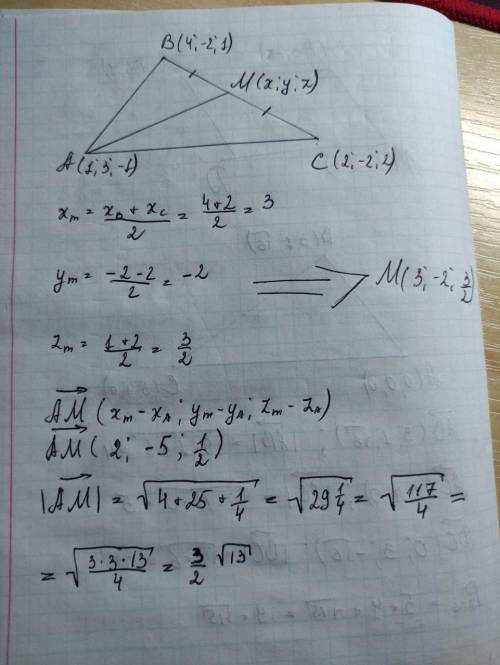 B(4; -2; 1)
M(x; y; z)
A(1; 3; -1)
C(2; -2; 2)
x_m = (x_B + x_C)/2 = (4+2)/2 = 3
y_m = (-2-2)/2 = -2
=> M(3; -2; 3/2)
z_m = (1+2)/2 = 3/2
AM→ (x_m - x_A; y_m - y_A; z_m - z_A)
AM→ (2; -5; 1/2)
|AM→| = √(4+25+1/4) = √(29 1/4) = √(117/4) =
= √(3·3·13/4) = 3/2 √13